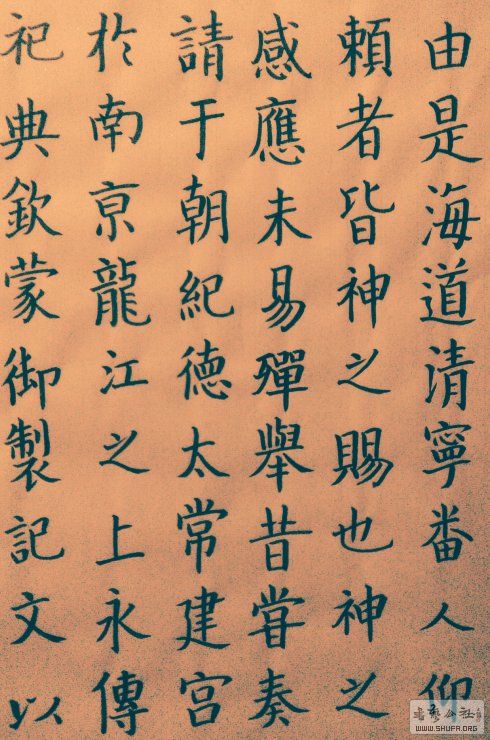 由是海道清寧番人仰
頼者皆神之賜也神之
感應未易殫舉昔甞奏
請于朝紀德太常建宫
於南亰龍江之上永傳
祀典欽蒙御製記文以
WWW.SHUFA.ORG